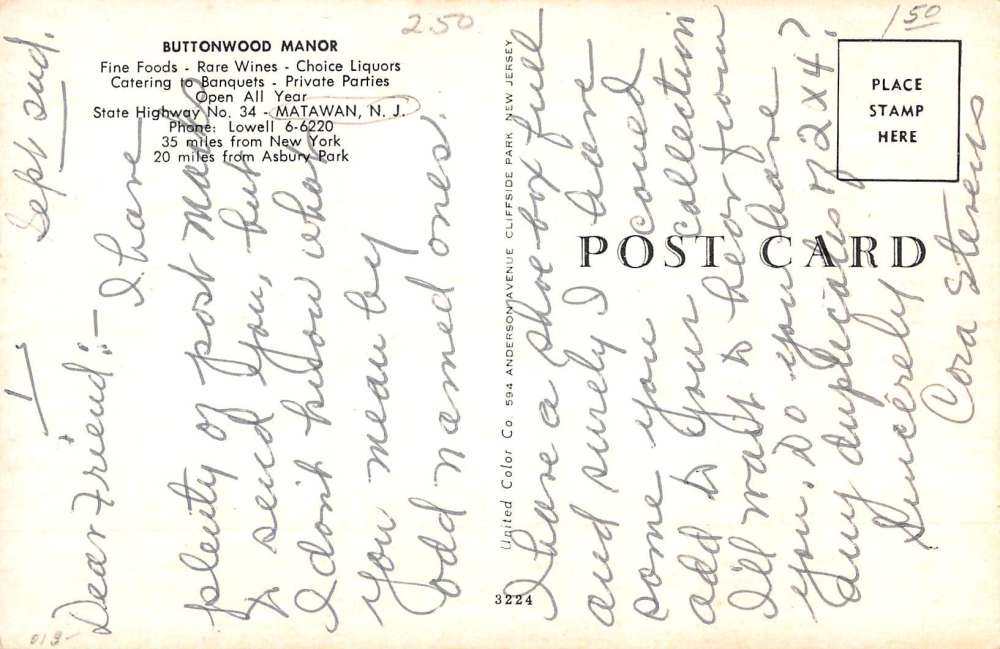 BUTTONWOOD MANOR
Fine Foods - Rare Wines - Choice Liquors
Catering to Banquets - Private Parties
Open All Year
State Highway No. 34 - MATAWAN, N. J.
Phone: Lowell 6-6220
35 miles from New York
20 miles from Asbury Park
2.50
1 50
PLACE
STAMP
HERE
POST CARD
United Color Co. 594 ANDERSON AVENUE CLIFFSIDE PARK NEW JERSEY
3224
013-
1 Sept 2nd.
Dear Friend:- I have
plenty of post marks
to send you, but
I don't know what
you mean by
odd named ones.
I have a shoe box full
and surely I have
some you could
add to your collection
I'll wait to hear from
you. Do you have
any duplicates M2x4?
Sincerely
Cora Stevens